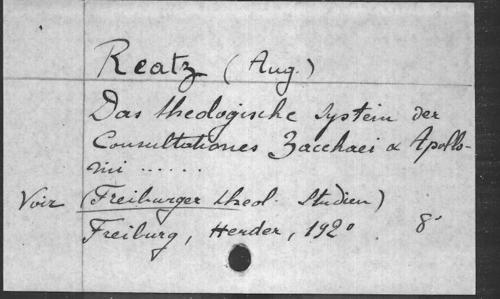 Reatz (Aug.)
Das theologische System der
Consultationes Zacchaei & Apollo-
nii ......
Voir (Freiburger theol. Studien)
Freiburg, Herder, 1920 8°